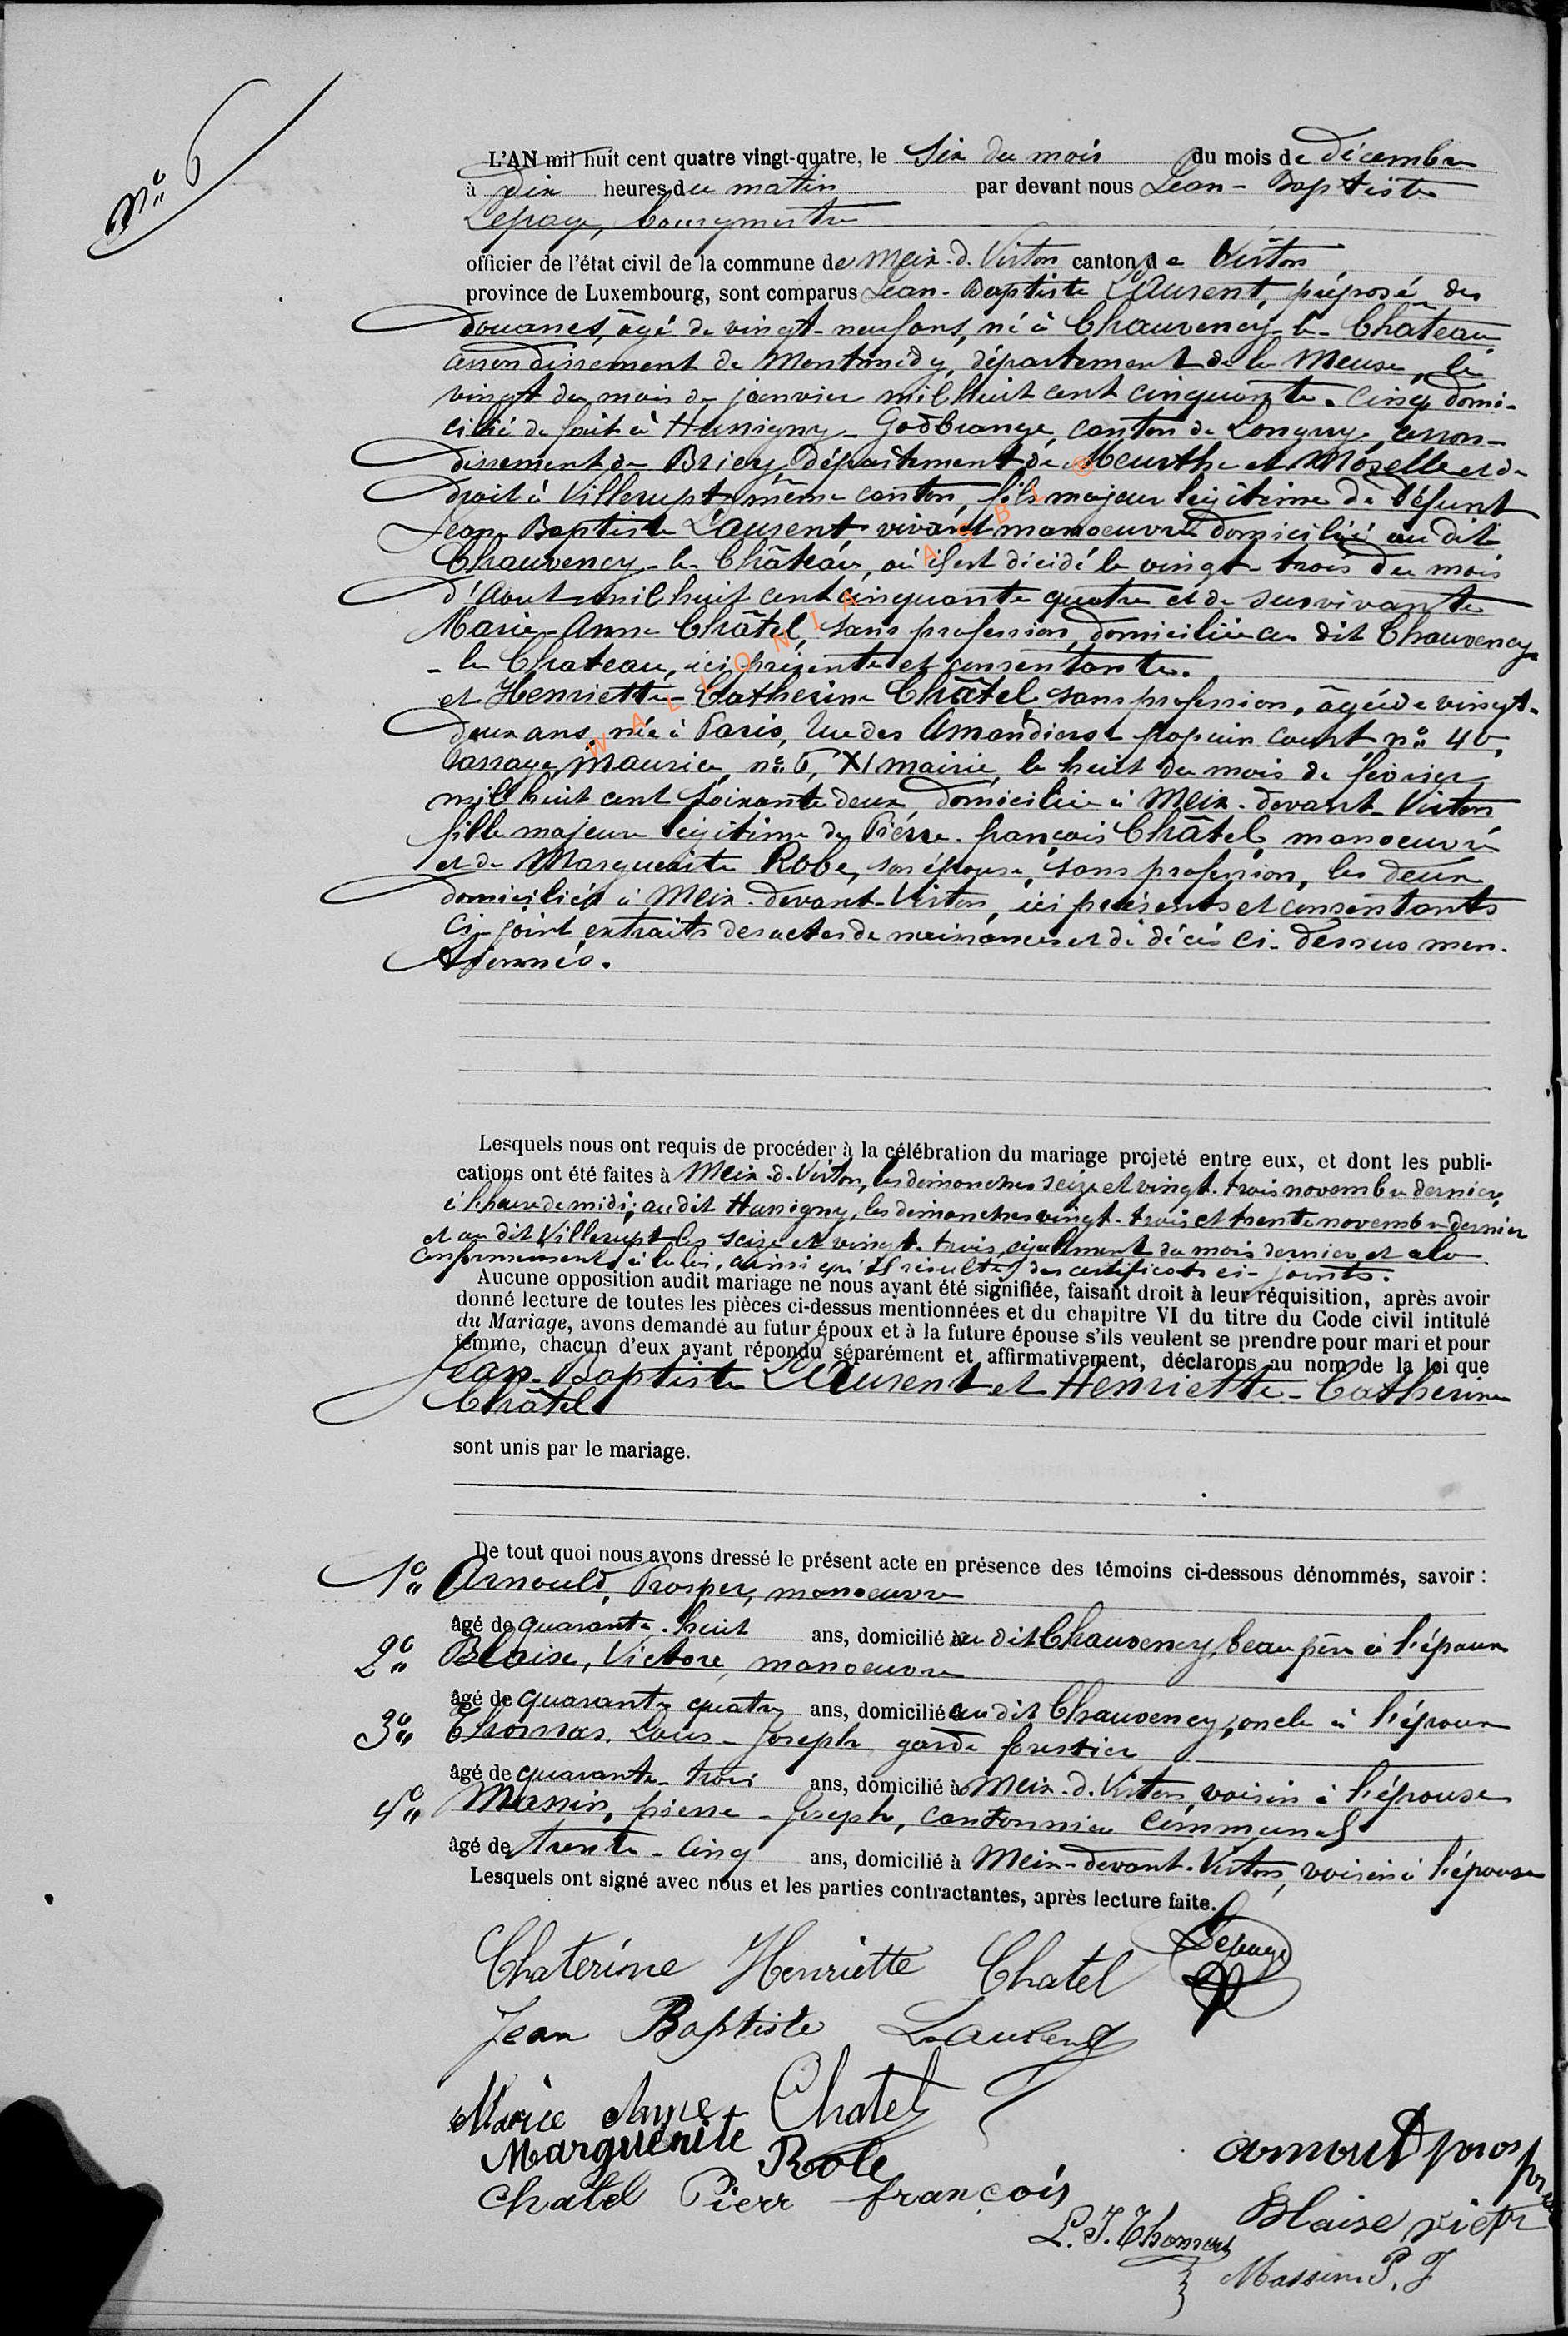 N° 6
L'AN mil huit cent quatre vingt-quatre, le Six du mois du mois de décembre
à dix heures du matin par devant nous Jean-Baptiste
Lepage, bourgmestre
officier de l'état civil de la commune de Meix-d. Virton canton de Virton
province de Luxembourg, sont comparus Jean-Baptiste Laurent, préposé des
douanes, âgé de vingt-neuf ans, né à Chauvency-le-Château
arrondissement de Montmédy, département de la Meuse, le
vingt du mois de janvier mil huit cent cinquante-cinq domi-
cilié de fait à Hussigny-Godbrange, canton de Longwy, arron-
dissement de Briey, département de Meurthe et Moselle et de
droit à Villerupt même canton, fils majeur légitime de défunt
Jean-Baptiste Laurent vivant manoeuvre domicilié au dit
Chauvency-le-Château, où il est décédé le vingt-trois du mois
d'Aout mil huit cent cinquante quatre et de survivante
Marie-Anne Châtel, sans profession, domiciliée au dit Chauvency-
-le Chateau, ici présente et consentante.
et Henriette-Catherine Châtel, sans profession, âgée de vingt-
deux ans, née à Paris, rue des Amandiers popincourt n° 40,
Passage Maurice, n° 6, XI mairie, le huit du mois de février
mil huit cent soixante deux, domiciliée à Meix-devant-Virton
fille majeure légitime de Pierre-françois Châtel, manoeuvre
et de Marguerite Robe, son épouse, sans profession, les deux
domiciliés à Meix-devant-Virton, ici présents et consentants
Ci-joint extraits des actes de naissances et de décès ci-dessus men-
tionnés.
Lesquels nous ont requis de procéder à la célébration du mariage projeté entre eux, et dont les publi-
cations ont été faites à Meix-d-Virton, les dimanches seize et vingt-trois novembre dernier,
à l'heure de midi; au dit Hussigny, les dimanches vingt-trois et trente novembre dernier
et au dit Villerupt les seize et vingt-trois également du mois dernier et
conformément à la loi, ainsi qu'il résulte des certificats ci-joints.
Aucune opposition audit mariage ne nous ayant été signifiée, faisant droit à leur réquisition, après avoir
donné lecture de toutes les pièces ci-dessus mentionnées et du chapitre VI du titre du Code civil intitulé
du Mariage, avons demandé au futur époux et à la future épouse s'ils veulent se prendre pour mari et pour
femme, chacun d'eux ayant répondu séparément et affirmativement, déclarons au nom de la loi que
Jean-Baptiste Laurent et Henriette-Catherine
Châtel
sont unis par le mariage.
De tout quoi nous avons dressé le présent acte en présence des témoins ci-dessous dénommés, savoir :
1° Arnould, Prosper, manoeuvre
âgé de quarante-huit ans, domicilié au dit Chauvency, beau père à l'époux
2° Blaise, Victore, manoeuvre
âgé de quarante quatre ans, domicilié au dit Chauvency, oncle à l'époux
3° Thomas Louis-Joseph garde forestier
âgé de quarante-trois ans, domicilié à Meix-d. Virton, voisin à l'épouse
4° Massin, pierre-Joseph, cantonnier communal
âgé de trente-cinq ans, domicilié à Meix-devant-Virton, voisin à l'épouse
Lesquels ont signé avec nous et les parties contractantes, après lecture faite.
Chaterine Henriette Chatel Lepage
Jean Baptiste Laurent
Marie Anne Chatel
Marguerite Robe
arnould prosper
Chatel Pierr françois
Blaise victor
L. J. Thomas
Massin P. J
WALLONIA ASBL ©